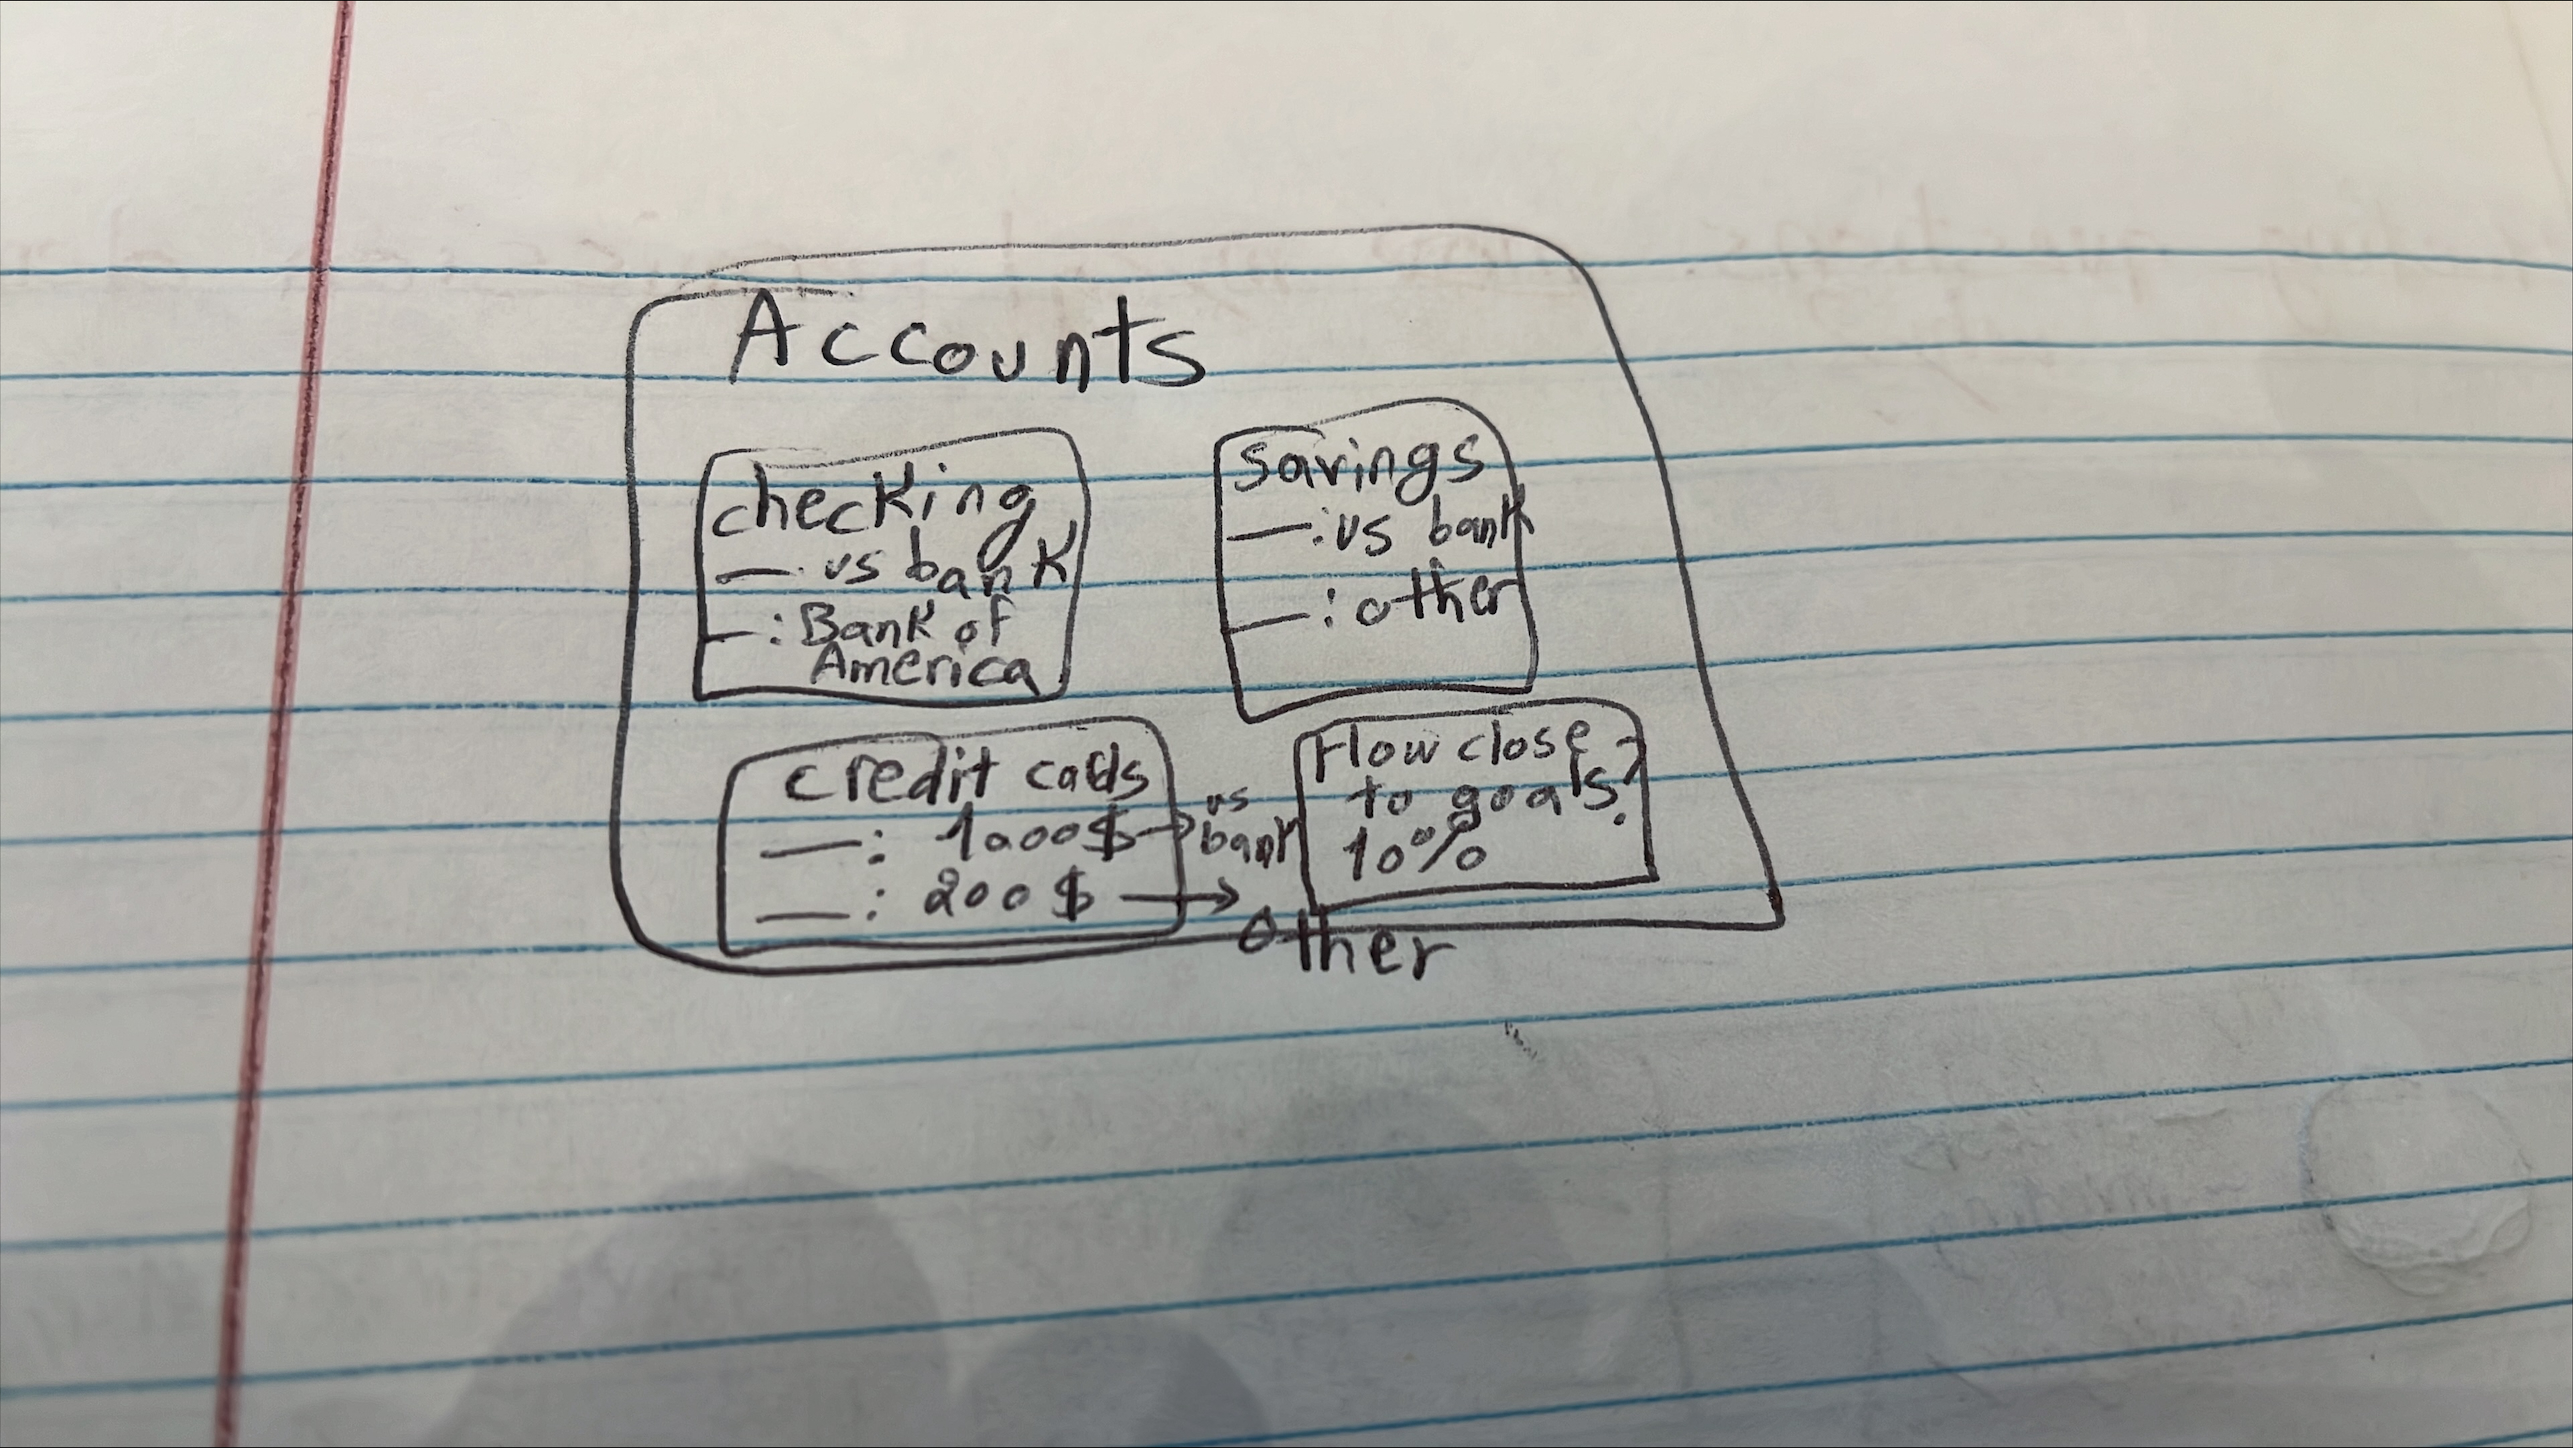 Accounts
checking
—: us bank
—: Bank of
America
savings
—: us bank
—: other
credit cards
—: 1000$ → us
bank
—: 200$ →
other
Flow close
to goals?
10%